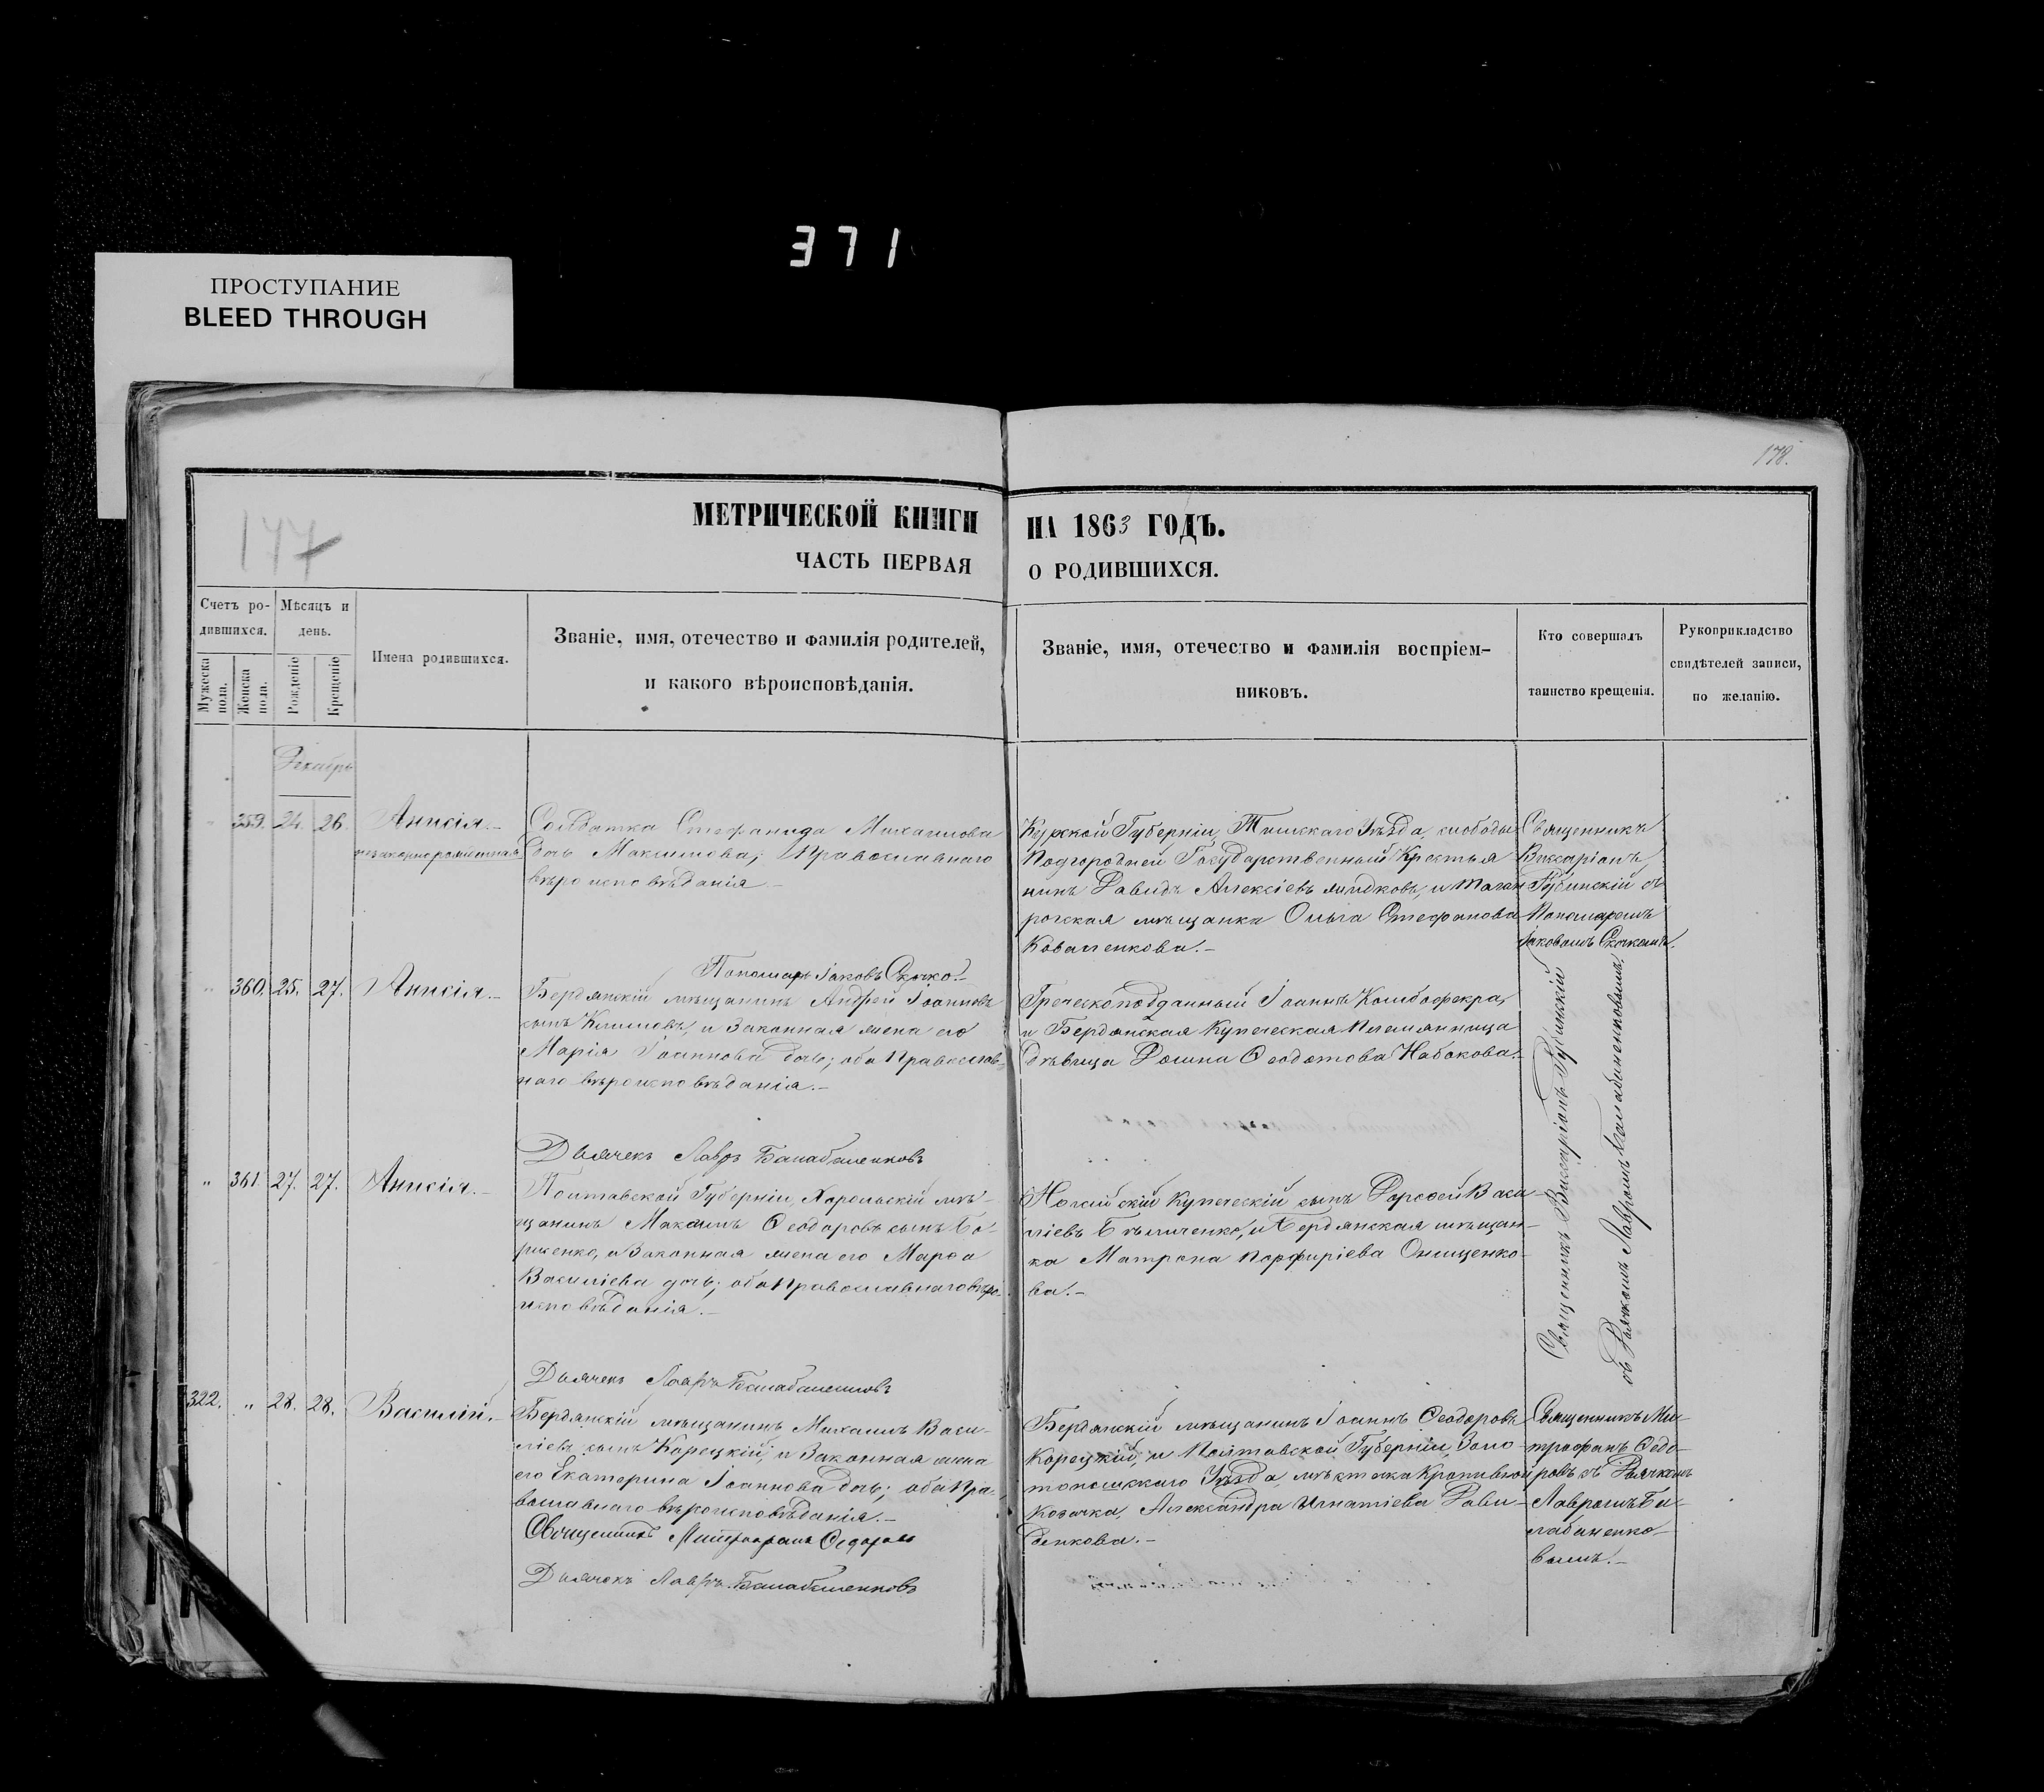 371
ПРОСТУПАНИЕ
BLEED THROUGH
178.
177
МЕТРИЧЕСКОЙ КНИГИ НА 1863 ГОДЪ.
ЧАСТЬ ПЕРВАЯ О РОДИВШИХСЯ.
Счетъ ро-
дившихся.
Мужеска пола.
Женска пола.
Мѣсяцъ и
день.
Рожденіе
Крещеніе
Имена родившихся.
Званіе, имя, отечество и фамилія родителей,
и какого вѣроисповѣданія.
Званіе, имя, отечество и фамилія воспріем-
никовъ.
Кто совершалъ
таинство крещенія.
Рукоприкладство
свидѣтелей записи,
по желанію.
Декабрь
" 359. 24. 26. Анисія.-
незаконнорожденная
Солдатка Стефанида Михаилова
дочь Максимова; Православнаго
вѣроисповѣданія.-
Курской Губерніи, Тимскаго Уѣзда, слободы
Подгородней Государственный Крестья-
нинъ Давидъ Алексіевъ и Таган
рогская мѣщанка Ольга Стефанова
Коваленкова.-
Священникъ
Виссаріонъ
Рубинскій съ
Пономаремъ
Іаковомъ Скочкомъ.
Пономарь Іаковъ Скочко.-
" 360. 25. 27. Анисія.-
Бердянскій мѣщанинъ Андрей Іоанновъ
сынъ Климовъ, и Законная жена его
Марія Іоаннова дочь; оба Православ-
наго вѣроисповѣданія.-
Греческоподданный Іоаннъ Комбофекра,
и Бердянская Купеческая Племянница
дѣвица Домна Ѳеодотова Набокова.-
Священникъ Виссаріонъ Рубинскій
съ Дьячкомъ Лавромъ Балабаненковымъ.
Дьячекъ Лавръ Балабаненковъ
" 361. 27. 27. Анисія.-
Полтавской Губерніи, Хорольскій мѣ-
щанинъ Максимъ Ѳеодоровъ сынъ Бо-
рисенко, и Законная жена его Марѳа
Василіева дочь; оба Православнаго вѣро-
исповѣданія.-
Ногайскій Купеческій сынъ Дороѳей Васи-
ліевъ Бѣличенко, и Бердянская мѣщан-
ка Матрона Порфиріева Онищенко-
ва.-
Дьячекъ Лавръ Балабаненковъ
322. " 28. 28. Василій.-
Бердянскій мѣщанинъ Михаилъ Васи-
ліевъ сынъ Корецкій, и Законная жена
его Екатерина Іоаннова дочь; оба Пра-
вославнаго вѣроисповѣданія.-
Бердянскій мѣщанинъ Іоаннъ Ѳеодоровъ
Корецкій, и Полтавской Губерніи, Золо-
тоношскаго Уѣзда, мѣстечка Кропивной
Козачка, Александра Игнатіева Дави-
денкова.-
Священникъ Ми-
трофанъ Ѳедо-
ровъ съ Дьячкомъ
Лавромъ Ба-
лабаненко-
вымъ.-
Священникъ Митрофанъ Ѳедоровъ
Дьячекъ Лавръ Балабаненковъ